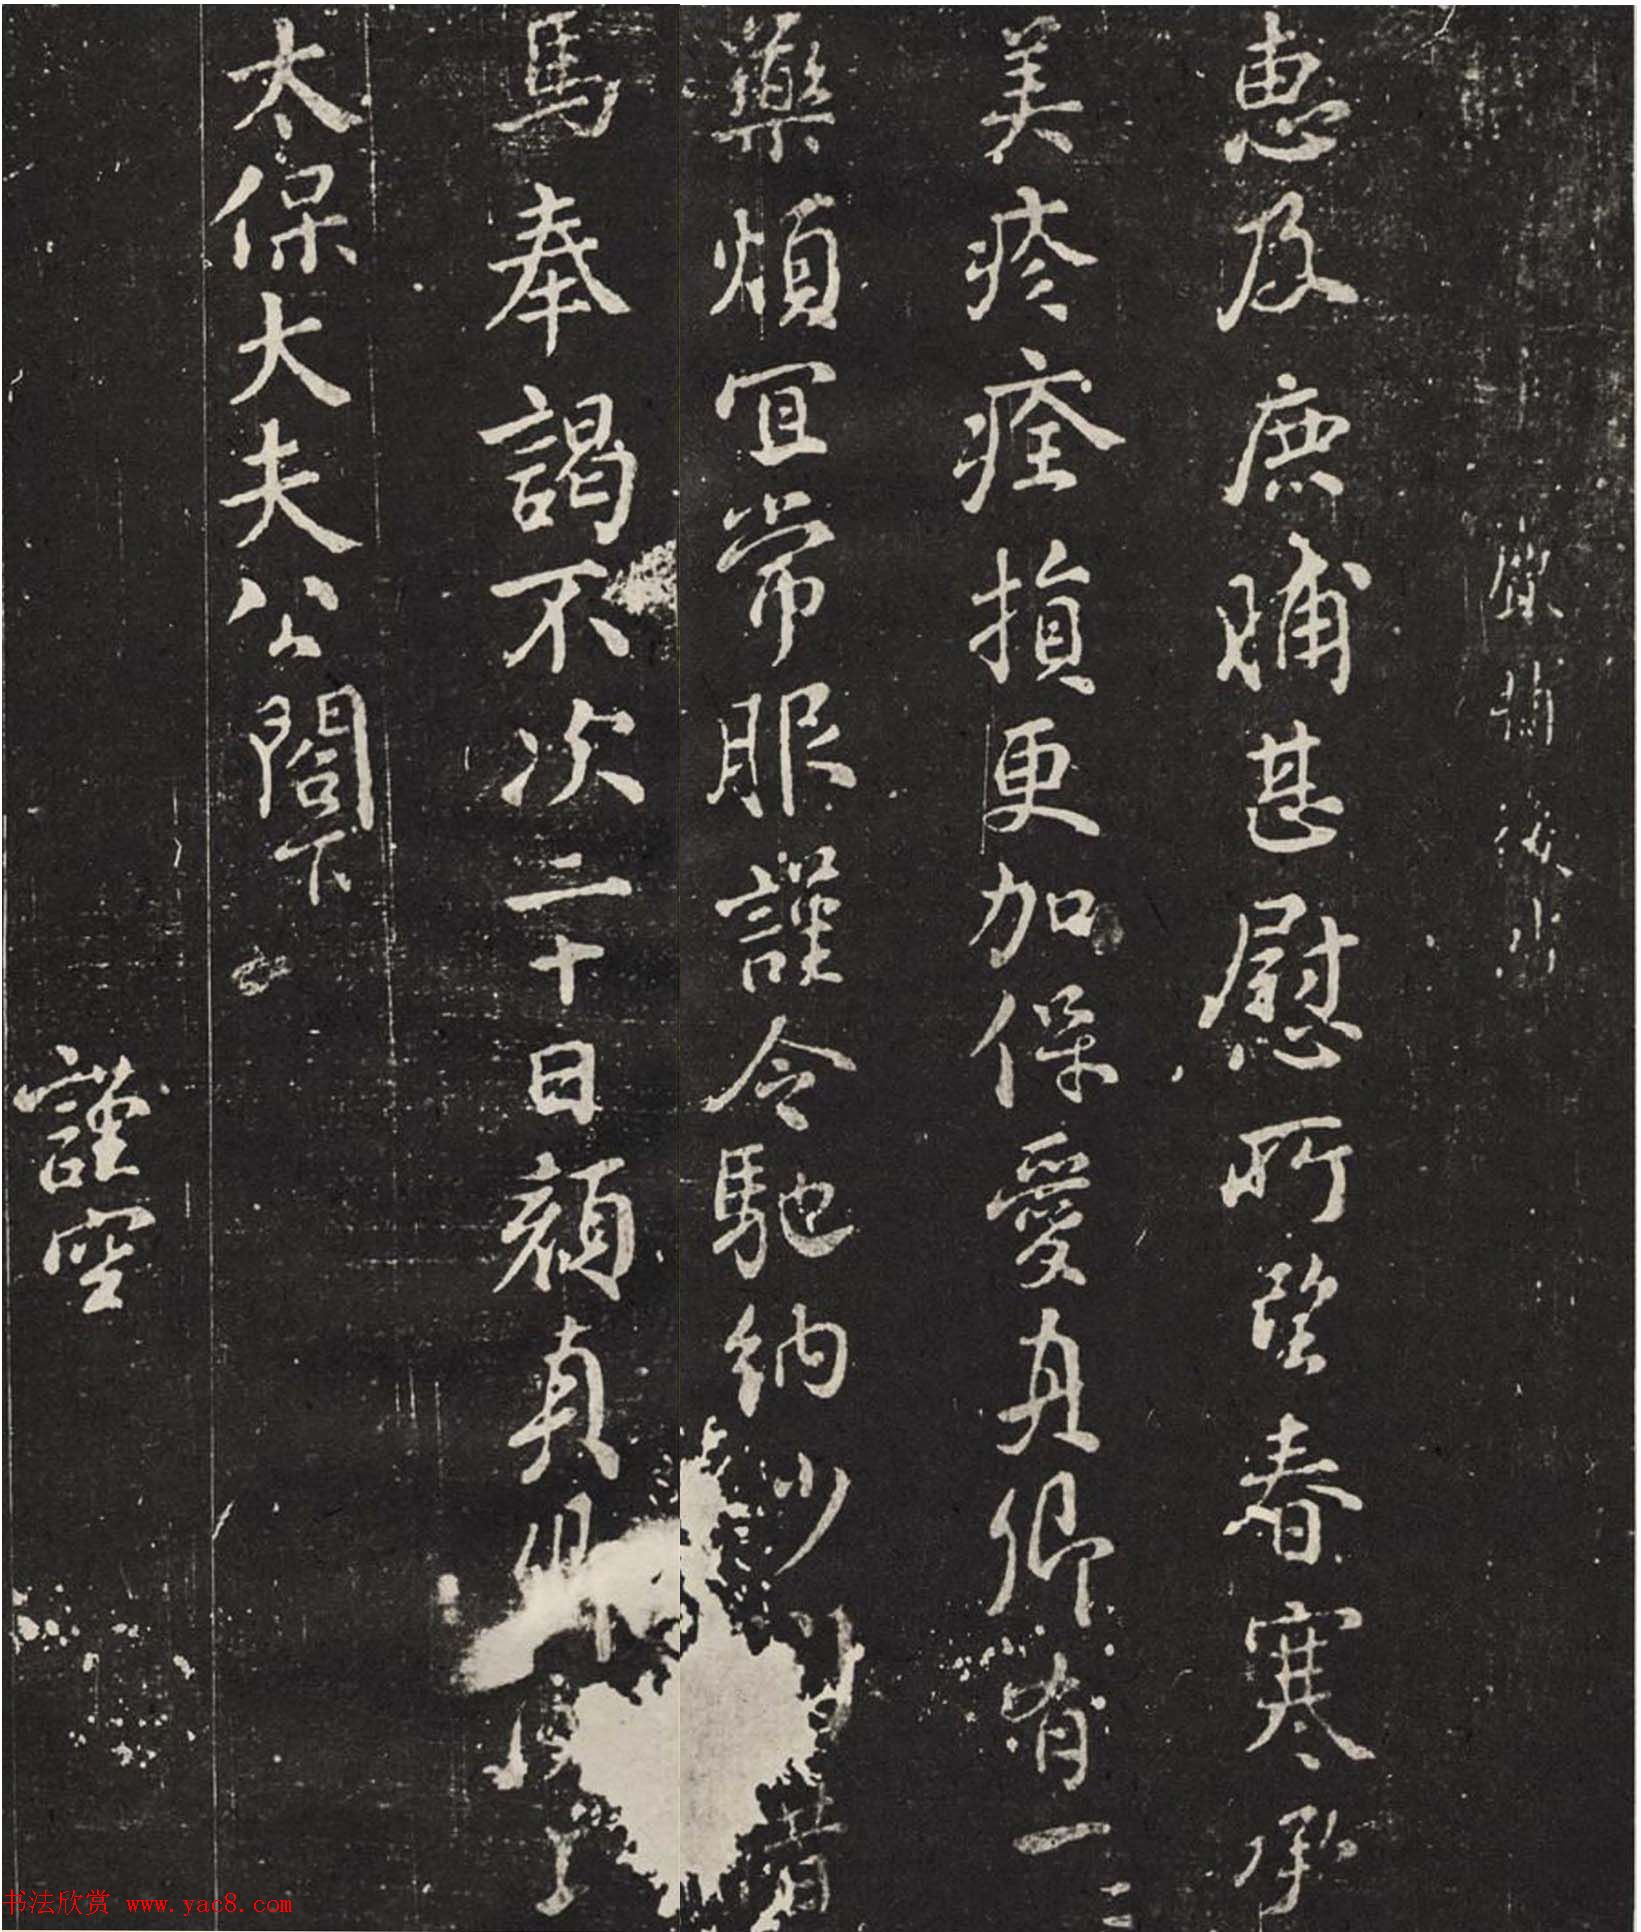 惠及鹿脯甚慰所望春寒承
美疹痊損更加保愛真卿有一二
藥煩宜常服謹令馳納少
馬奉謁不次二十日顏真卿
太保大夫公閤下
謹空
书法欣赏 www.yac8.com